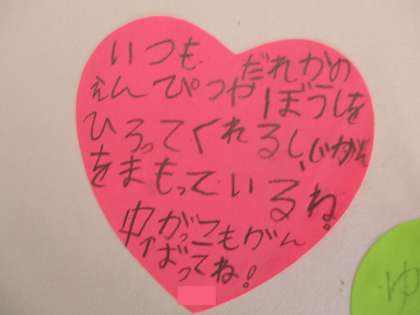 いつも だれかの
えんぴつやぼうしを
ひろってくれるし、じかん
をまもっているね。
中がっこうもがん
ばってね!
ゆ